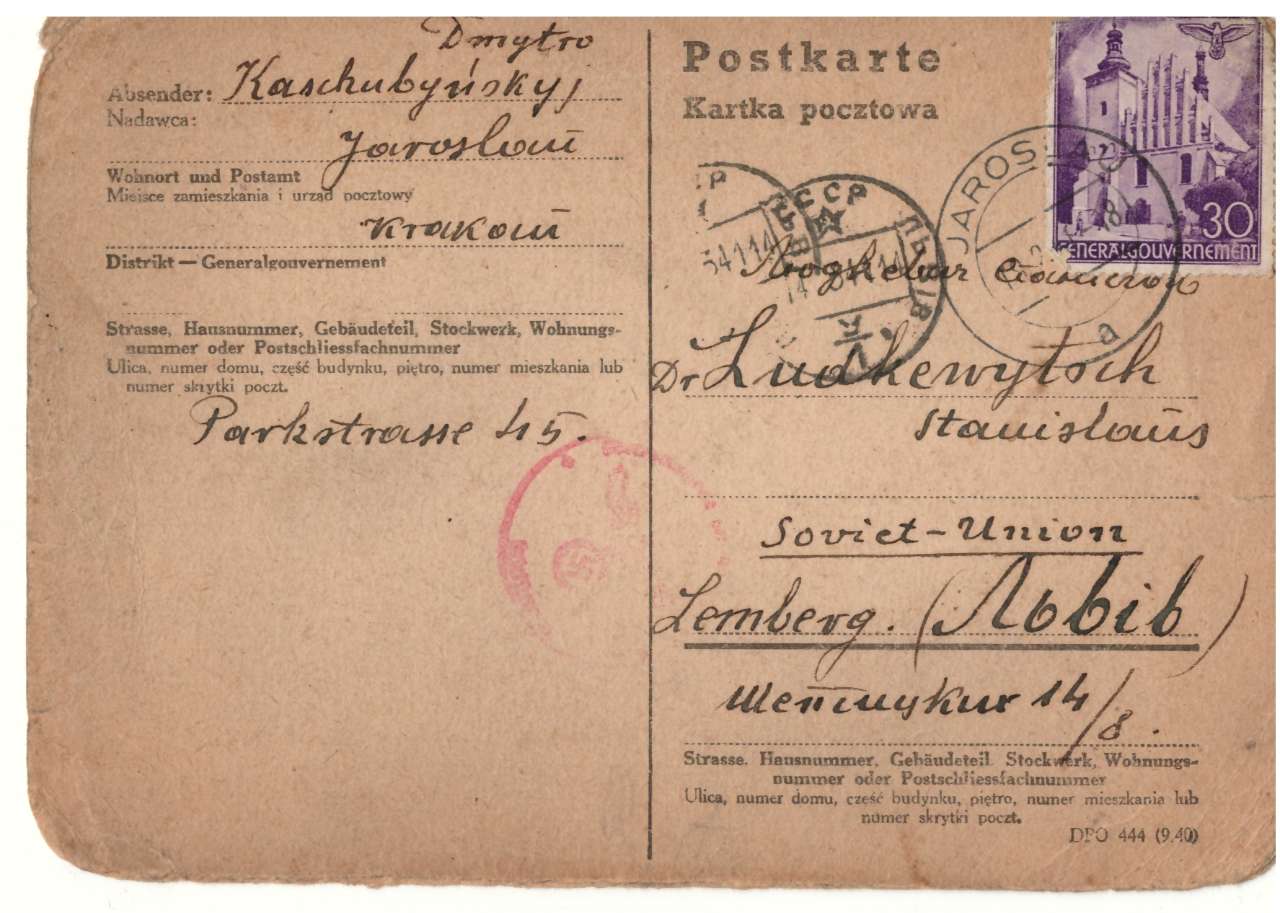 Dmytro
Absender: Kaschubyńskyj
Nadawca:
Jaroslau
Wohnort und Postamt
Miejsce zamieszkania i urząd pocztowy
Krakau
Distrikt — Generalgouvernement
Strasse, Hausnummer, Gebäudeteil, Stockwerk, Wohnungs-
nummer oder Postschliessfachnummer
Ulica, numer domu, część budynku, piętro, numer mieszkania lub
numer skrytki poczt.
Parkstrasse 45.
Postkarte
Kartka pocztowa
30
GENERALGOUVERNEMENT
JAROSLAU
a
СССР ЛЬВІВ
Dr Ludkewytsch
Stanislaus
Soviet-Union
Lemberg. (Львів)
14/8.
Strasse, Hausnummer, Gebäudeteil, Stockwerk, Wohnungs-
nummer oder Postschliessfachnummer
Ulica, numer domu, cześć budynku, piętro, numer mieszkania lub
numer skrytki poczt.
DPO 444 (9.40)